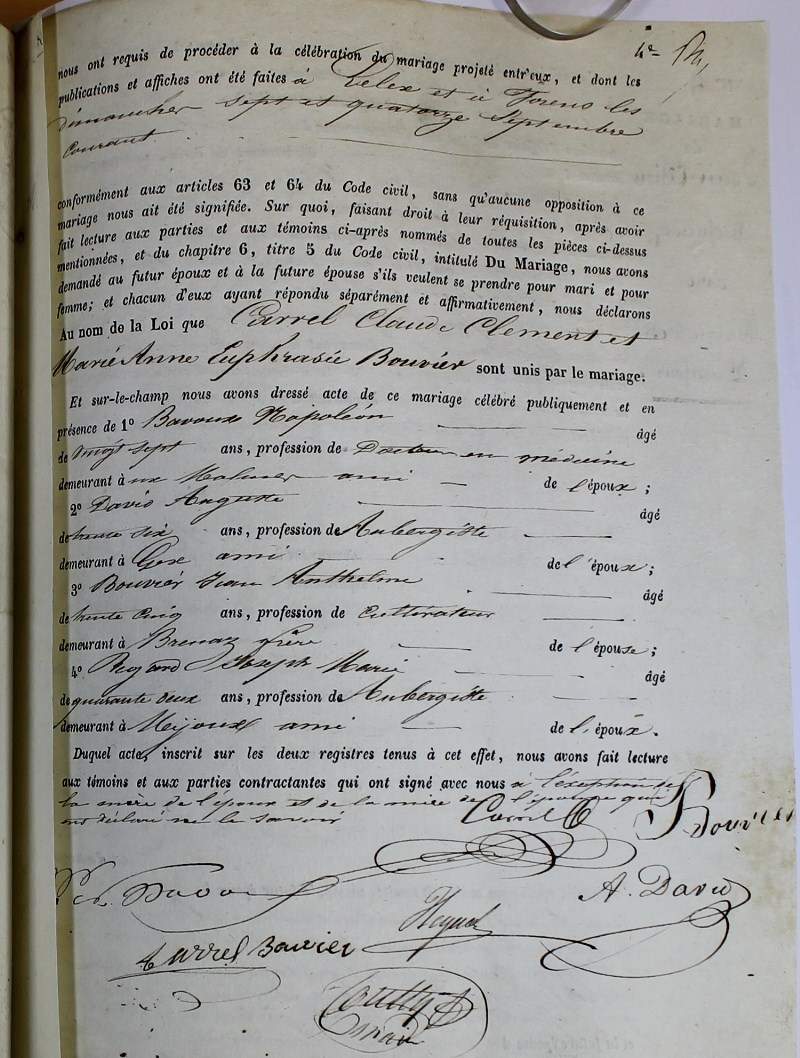 4e
nous ont requis de procéder à la célébration du mariage projeté entr'eux, et dont les
publications et affiches ont été faites à Lelex et à Forens les
dimanches sept et quatorze Septembre
courant.
conformément aux articles 63 et 64 du Code civil, sans qu'aucune opposition à ce
mariage nous ait été signifiée. Sur quoi, faisant droit à leur réquisition, après avoir
fait lecture aux parties et aux témoins ci-après nommés de toutes les pièces ci-dessus
mentionnées, et du chapitre 6, titre 5 du Code civil, intitulé Du Mariage, nous avons
demandé au futur époux et à la future épouse s'ils veulent se prendre pour mari et pour
femme; et chacun d'eux ayant répondu séparément et affirmativement, nous déclarons
Au nom de la Loi que Carrel Claude Clement et
Marie Anne Euphrasie Bouvier sont unis par le mariage.
Et sur-le-champ nous avons dressé acte de ce mariage célébré publiquement et en
présence de 1º Bavoux Napoléon âgé
de vingt sept ans, profession de Docteur en médecine
demeurant à ami de l'époux;
2º David Auguste âgé
de trente six ans, profession de Aubergiste
demeurant à Gex ami de l'époux;
3º Bouvier Jean Anthelme âgé
de trente cinq ans, profession de Cultivateur
demeurant à Brenaz frère de l'épouse;
4º Regard Joseph Marie âgé
de quarante deux ans, profession de Aubergiste
demeurant à Mijoux ami de l'époux.
Duquel acte, inscrit sur les deux registres tenus à cet effet, nous avons fait lecture
aux témoins et aux parties contractantes qui ont signé avec nous à l'exception de
la mère de l'époux et de la mère de l'épouse qui
ont déclaré ne le savoir
Carrel C Bouvier
A. David
Carrel Bouvier